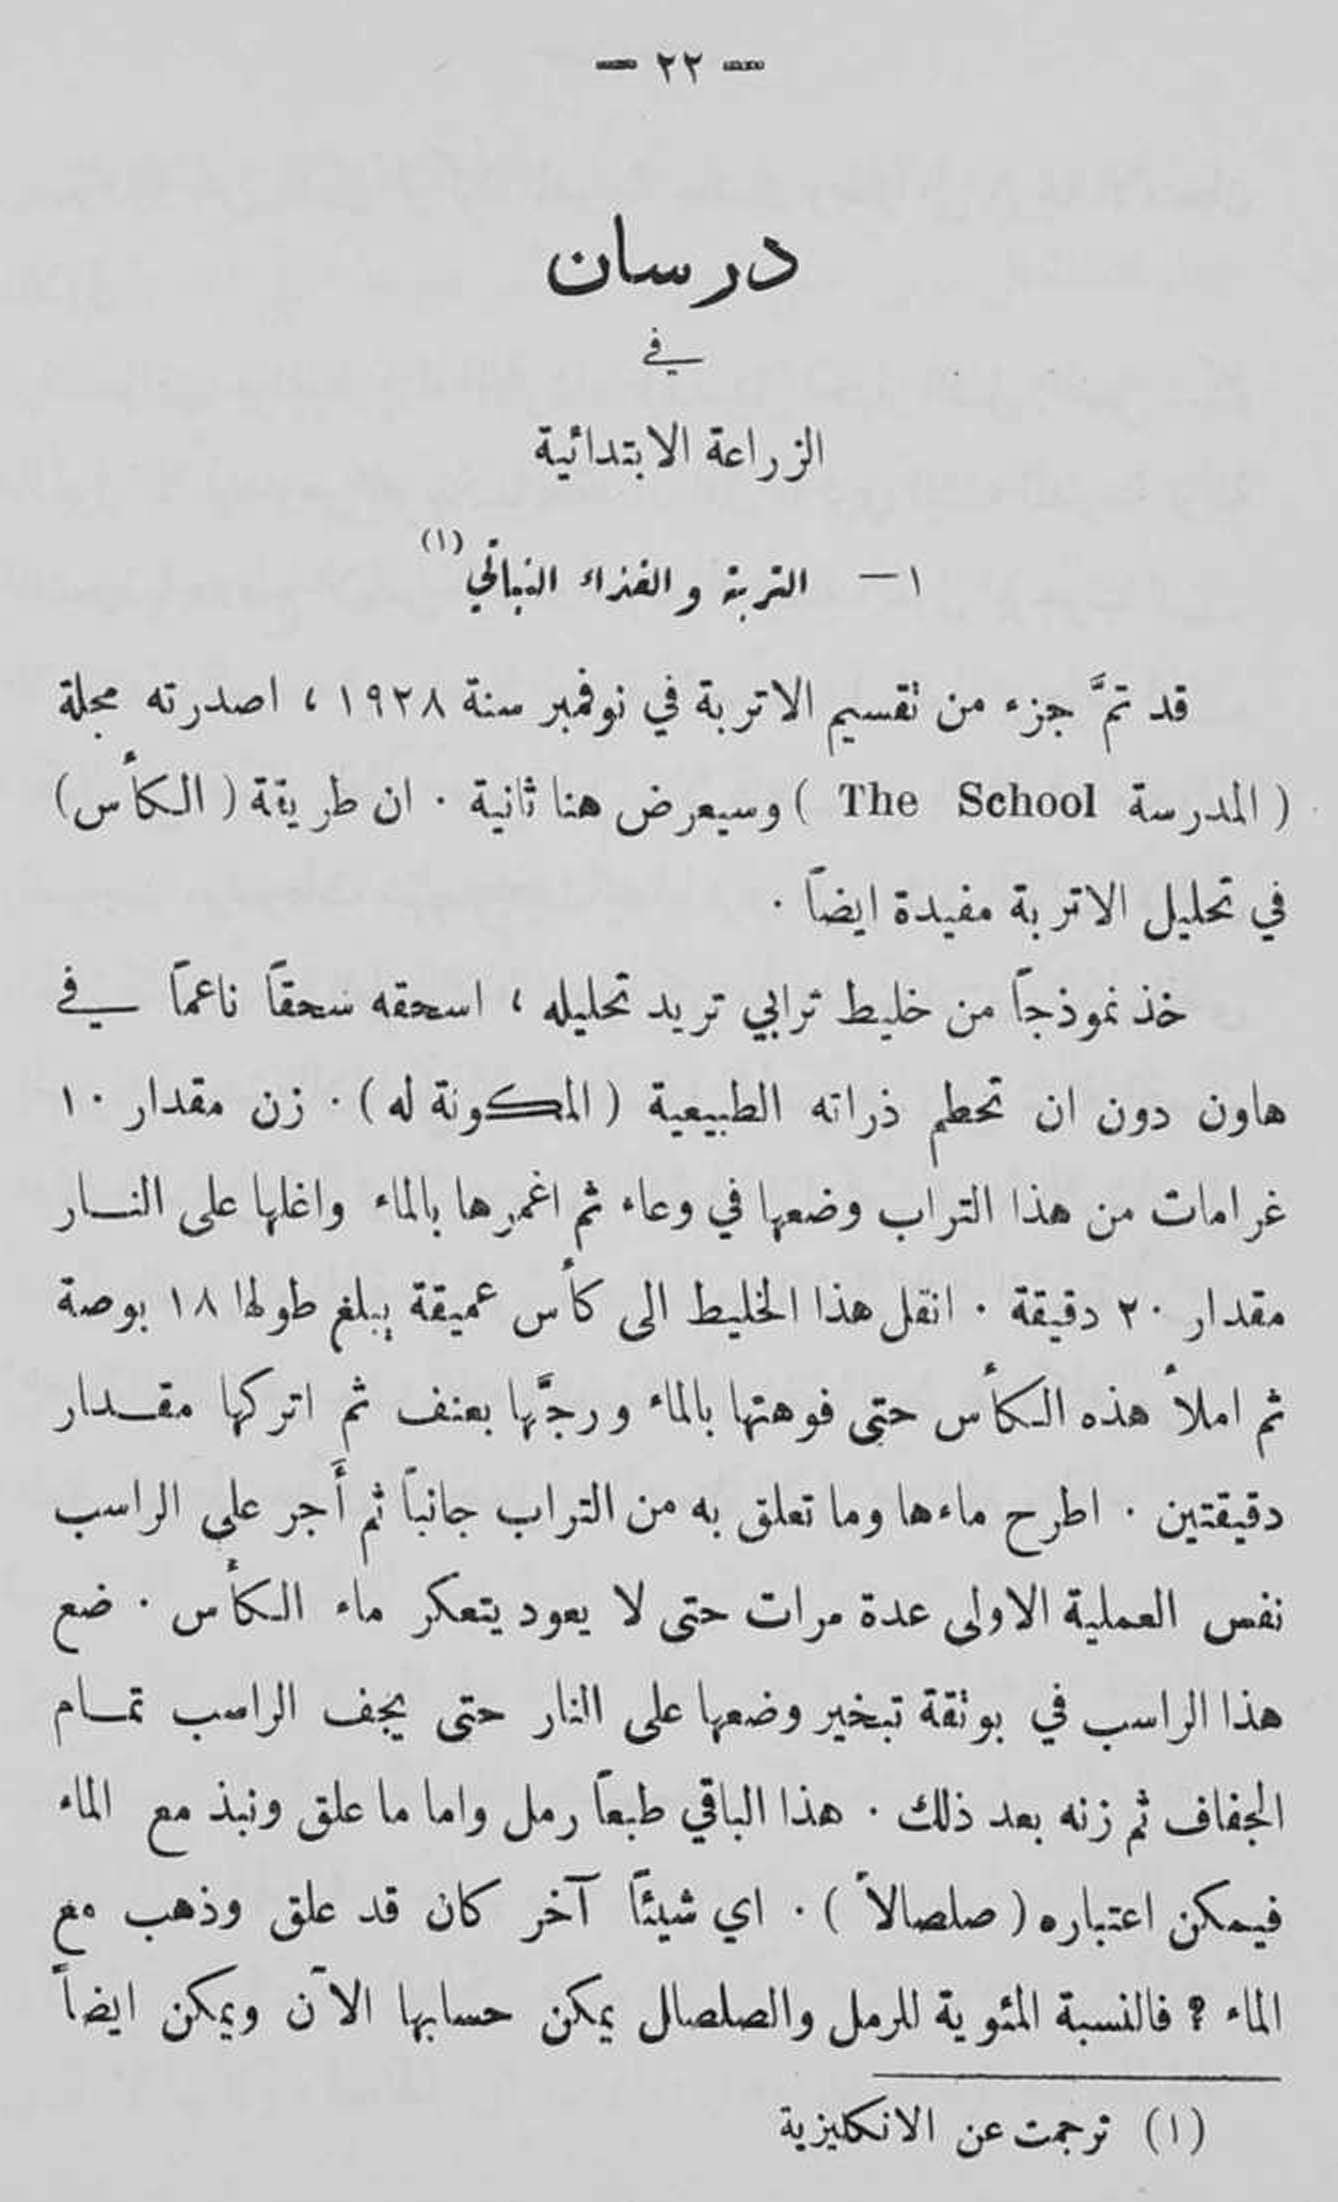 — ٢٢ —
درسان
في
الزراعة الابتدائية
١— التربة والغذاء النباتي (١)
قد تمَّ جزء من تقسيم الاتربة في نوفمبر سنة ١٩٢٨ ، اصدرته مجلة
( المدرسة The School ) وسيعرض هنا ثانية . ان طريقة ( الكأس )
في تحليل الاتربة مفيدة ايضاً .
خذ نموذجاً من خليط ترابي تريد تحليله ، اسحقه سحقاً ناعماً في
هاون دون ان تحطم ذراته الطبيعية ( المكونة له ) . زن مقدار ١٠
غرامات من هذا التراب وضعها في وعاء ثم اغمرها بالماء واغلها على النار
مقدار ٢٠ دقيقة . انقل هذا الخليط الى كأس عميقة يبلغ طولها ١٨ بوصة
ثم املأ هذه الكأس حتى فوهتها بالماء ورجَّها بعنف ثم اتركها مقدار
دقيقتين . اطرح ماءها وما تعلق به من التراب جانباً ثم أَجر على الراسب
نفس العملية الاولى عدة مرات حتى لا يعود يتعكر ماء الكأس . ضع
هذا الراسب في بوتقة تبخير وضعها على النار حتى يجف الراسب تمام
الجفاف ثم زنه بعد ذلك . هذا الباقي طبعاً رمل واما ما علق ونبذ مع الماء
فيمكن اعتباره ( صلصالاً ) . اي شيئاً آخر كان قد علق وذهب مع
الماء ؟ فالنسبة المئوية للرمل والصلصال يمكن حسابها الآن ويمكن ايضاً
(١) ترجمت عن الانكليزية